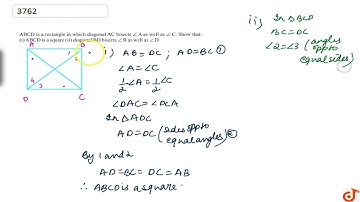 3762
ABCD is a rectangle in which diagonal AC bisects ∠ A as well as ∠ C. Show that
(i) ABCD is a square (ii) diagonal BD bisects ∠ B as well as ∠ D.
A B
1 2
4 3
D C
i) AB = DC ; AD = BC ①
∠A = ∠C
1/2 ∠A = 1/2 ∠C
∠DAC = ∠DCA
In △ADC
AD = DC (sides opp to equal angles) ②
By 1 and 2
AD = BC = DC = AB
∴ ABCD is a square.
ii) In △BCD
BC = DC
∠2 = ∠3 (angles opp to equal sides)